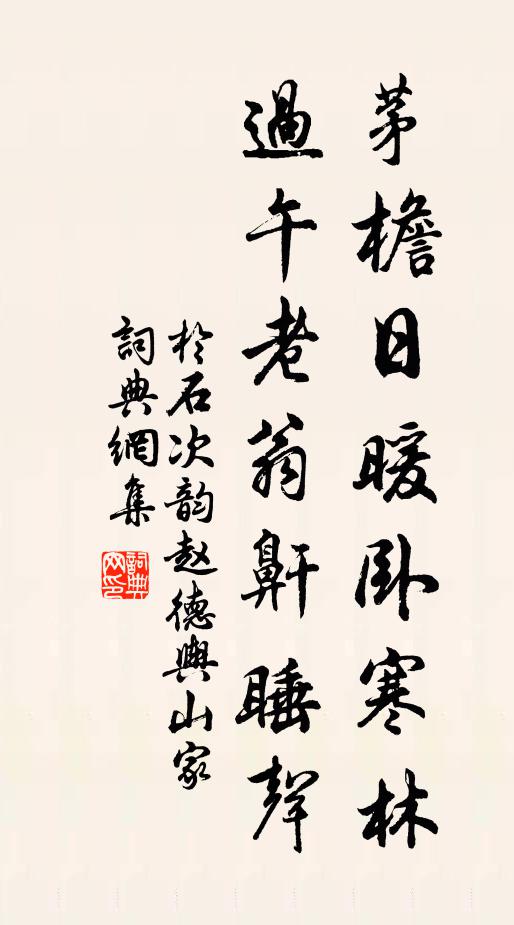 茅檐日暖卧寒林
過午老翁鼾睡聲
於石次韵赵德輿山家
詞典網集
詞典